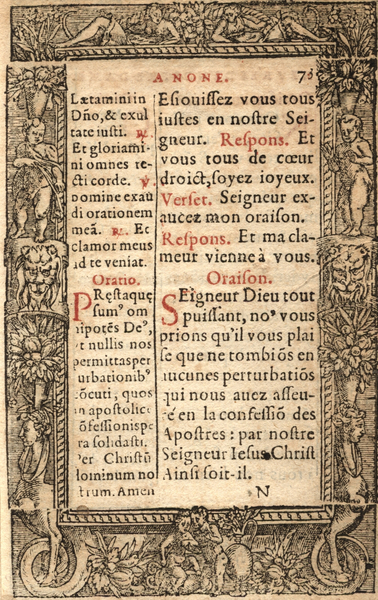 A NONE.
73
Lætamini in
Dño, & exul
tate iusti. ꝶ.
Et gloriami-
ni omnes re-
cti corde. ℣
Domine exau
di orationem
meã. ꝶ. Et
clamor meus
ad te veniat.
Oratio.
PRęstaquę
sumꝰ om
nipotẽs Deꝰ,
ut nullis nos
permittas per
turbationibꝰ
cõcuti, quos
in apostolicę
cõfessionis pe
tra solidasti.
Per Christũ
dominum no
strum. Amen
Esiouissez vous tous
iustes en nostre Sei-
gneur. Respons. Et
vous tous de cœur
droict, soyez ioyeux.
Verset. Seigneur ex-
aucez mon oraison.
Respons. Et ma cla-
meur vienne à vous.
Oraison.
SEigneur Dieu tout
puissant, noꝰ vous
prions qu'il vous plai
se que ne tombiõs en
aucunes perturbatiõs
qui nous auez asseu-
ré en la confessiõ des
Apostres : par nostre
Seigneur Iesus Christ
Ainsi soit-il.
N